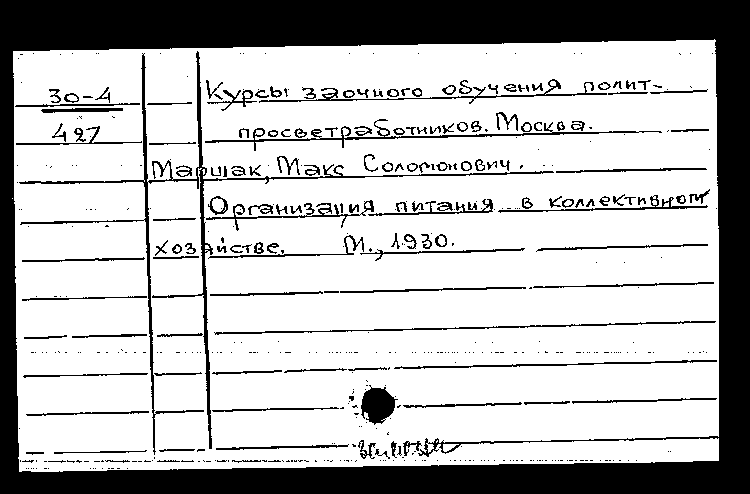 30-4
427
Курсы заочного обучения полит-
просветработников. Москва.
Маршак, Макс Соломонович.
Организация питания в коллективном
хозяйстве. М., 1930.